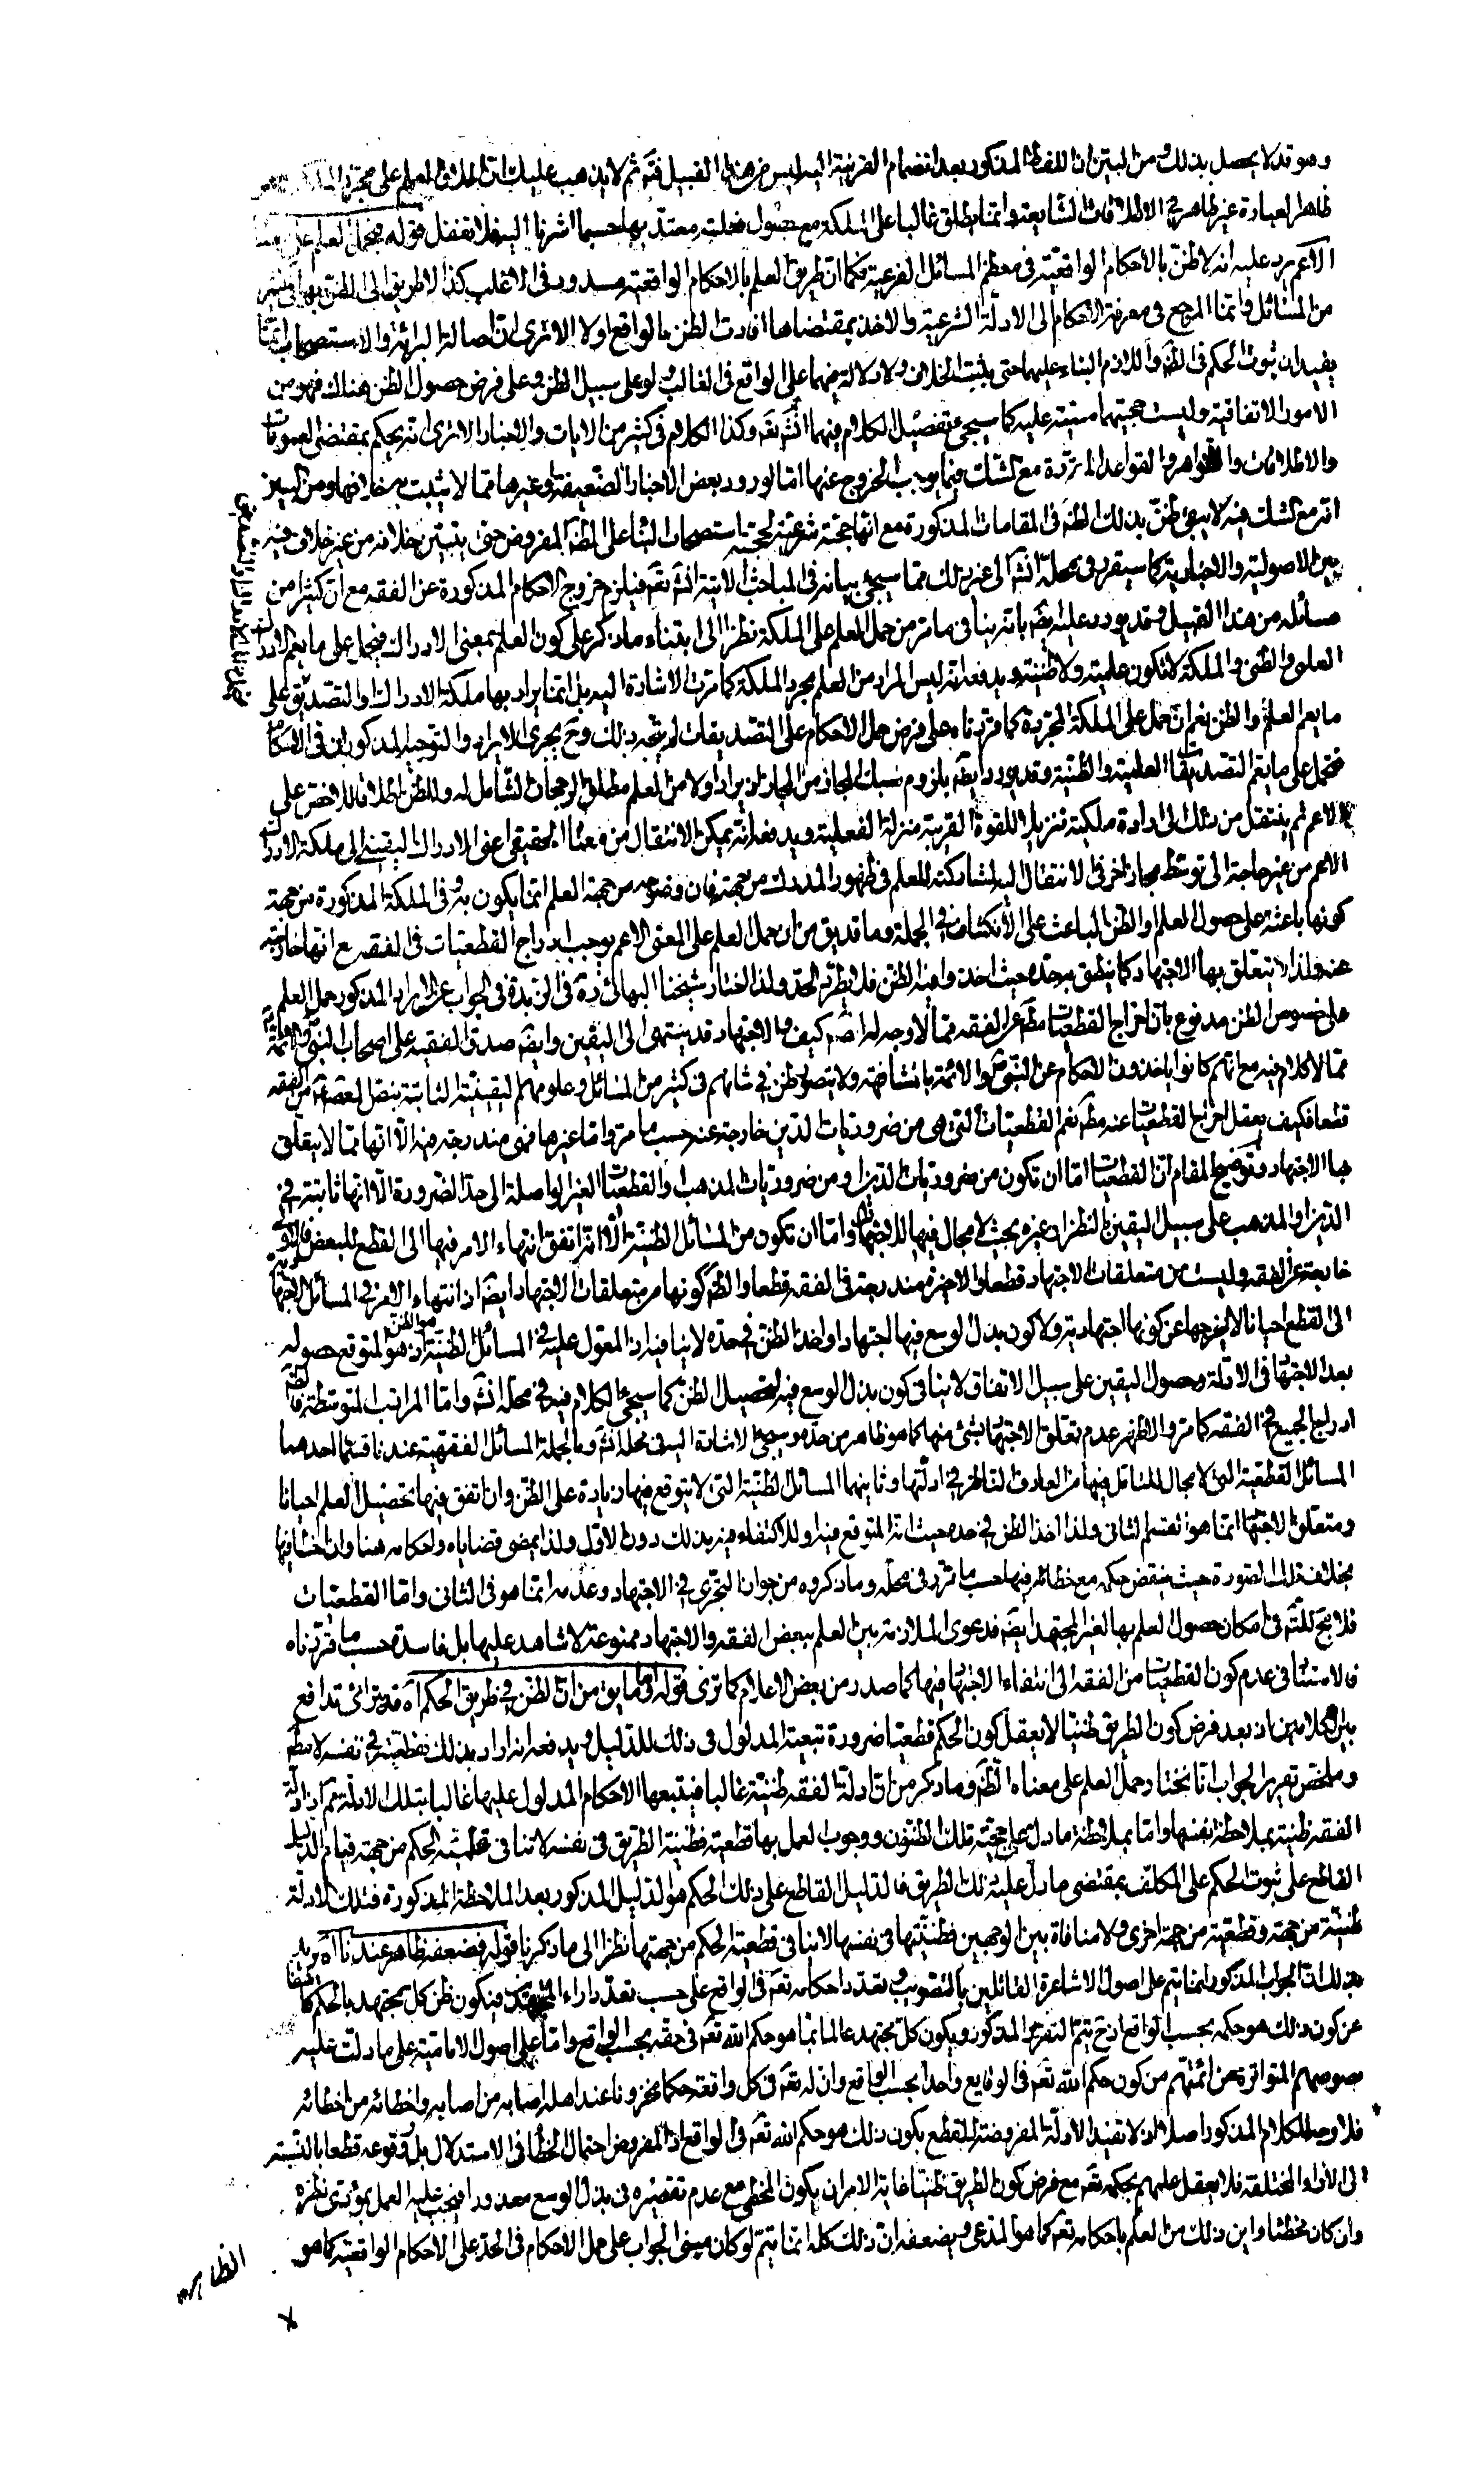 وهو قد لا يحصل بذلك ومن البين ان اللفظ المذكور بعد انضمام القرينة اليه ليس من هذا القبيل فتأمل ثم لا يذهب عليك ان اطلاق العلم على مجرد الملكة
ظاهر العبارة غير ظاهر في الاطلاقات الشايعة وانما يطلق غالبا على الملكة مع حصول فعلية معتد بها حسبما اشرنا اليه فلا تغفل قوله فيحمل العلم على
الاعم يرد عليه انه لا ظن بالاحكام الواقعية في معظم المسائل الفرعية فكما ان طريق العلم بالاحكام الواقعية مسدود في الاغلب كذا لا طريق الى الظن بها في كثير
من المسائل وانما المرجع في معرفة الاحكام الى الادلة الشرعية والاخذ بمقتضاها افادت الظن بالواقع اولا الا ترى ان اصالة البرائة والاستصحاب انما
يفيدان ثبوت الحكم في الظ واللازم البناء عليهما حتى يثبت الخلاف ولا دلالة فيهما على الواقع في الغالب ولو على سبيل الظن وعلى فرض حصول الظن هناك فهو من
الامور الاتفاقية وليست حجيتهما مبنية عليه كما سيجئ تفصيل الكلام فيهما انش تعه وكذا الكلام في كثير من الايات والاخبار الا ترى انه يحكم بمقتضى العمومات
والاطلاقات والظواهر والقواعد المقررة مع الشك فيما يوجب الخروج عنها اما لورود بعض الاخبار الضعيفة وغيرها مما لا يثبت به خلافها ومن البين
انه مع الشك فيه لا يبقى ظن بذلك الظ في المقامات المذكورة مع انها حجة شرعية لحجية استصحاب البناء على الظ المفروض حتى يتبين خلافه من غير خلاف فيه
بين الاصولية والاخبارية كما سيقرر في محله انش الى غير ذلك مما سيجئ بيانه في المباحث الاتية انش تعه فيلزم خروج الاحكام المذكورة عن الفقه مع ان كثيرا من
مسائله من هذا القبيل وقد يورد عليه ايضا بانه ينافى ما مر من حمل العلم على الملكة نظرا الى ابتناء ما ذكر على كون العلم بمعنى الادراك فيحمل على ما يعم الادراك
العلمي والظني والملكة لا تكون علمية ولا ظنية ويدفعه انه ليس المراد من العلم مجرد الملكة كما مرت الاشارة اليه بل انما يراد بها ملكة الادراك والتصديق على
ما يعم العلم والظن نعم ان حمل على الملكة المجردة كما قررناه على فرض حمل الاحكام على التصديقات لم يتجه ذلك وح يجرى الايراد والتوجيه المذكوران في الاحكام
فتحمل على ما يعم التصديقات العلمية والظنية وقد يورد ايضا بلزوم سبك المجاز من المجاز اذ يراد اولا من العلم مطلق الرجحان الشامل له وللظن اطلاقا للاخص على
الاعم ثم ينتقل من ذلك الى ارادة ملكيته تنزيلا للقوة القريبة منزلة الفعلية ويدفعه انه يمكن الانتقال من معناه الحقيقي اعنى الادراك اليقيني الى ملكة الادراك
الاعم من غير حاجة الى توسط مجاز اخر في الانتقال اليه لمشاركته للعلم في ظهور المدرك من جهته فان وضوحه من جهة العلم انما يكون به وفي الملكة المذكورة من جهة
كونها باعثة على حصول العلم او الظن الباعث على الانكشاف في الجملة وما قد يق من ان حمل العلم على المعنى الاعم يوجب ادراج القطعيات في الفقه مع انها خارجة
عنه ولذا لا يتعلق بها الاجتهاد كما ينطق به حده حيث اخذ وا فيه الظن فلا يطرد الحد ولذا اختار شيخنا البهائي ره في الزبدة في الجواب عن الايراد المذكور حمل العلم
على خصوص الظن مدفوع بان اخراج القطعيات مطه عن الفقه مما لا وجه له اصلا كيف والاجتهاد قد ينتهى الى اليقين وايضا صدق الفقيه على اصحاب النبي والائمة
مما لا كلام فيه مع انهم كانوا ياخذون الاحكام عن النبي ص والائمة بالمشافهة ولا يتصور ظن في شانهم في كثير من المسائل وعلومهم اليقينية الثابتة بنقل المعصوم من الفقه
قطعا فكيف يعقل اخراج القطعيات عنه مطه نعم القطعيات التي هي من ضروريات الدين خارجة عنه حسب ما مر واما غيرها فهي مندرجة فيه الا انها مما لا يتعلق
بها الاجتهاد وتوضيح المقام ان القطعيات اما ان تكون من ضروريات الدين او من ضروريات المذهب او القطعيات الغير الواصلة الى حد الضرورة الا انها ثابتة في
الدين او المذهب على سبيل اليقين بالنظر او غيره بحيث لا مجال فيها للاجتهاد واما ان تكون من المسائل الظنية الا انه اتفق انتهاء الامر فيها الى القطع للبعض فالاولى
خارجة عن الفقه وليست من متعلقات الاجتهاد قطعا والاخيرة مندرجة في الفقه قطعا والظ كونها من متعلقات الاجتهاد ايضا اذ انتهاء الامر في المسائل الاجتهادية
الى القطع احيانا لا يخرجها عن كونها اجتهادية ولا كون بذل الوسع فيها اجتهادا واخذ الظن في حده لا ينافيه اذ المعول عليه في المسائل الظنية اذ هو المتوقع حصوله
هو الظن
بعد الاجتهاد في الادلة وحصول اليقين على سبيل الاتفاق لا ينافى كون بذل الوسع فيه لتحصيل الظن كما سيجئ الكلام فيه في محله انش واما المراتب المتوسطة فالظ
ادراج الجميع في الفقه كما مر والاظهر عدم تعلق الاجتهاد بشئ منها كما هو ظاهر من حده وسيجئ الاشارة اليه في محله انش وبالجملة المسائل الفقهية عندنا قسمان احدهما
المسائل القطعية التي لا مجال للتامل فيها من العارف الناظر في ادلتها وثانيهما المسائل الظنية التي لا يتوقع فيها زيادة على الظن وان اتفق فيها تحصيل العلم احيانا
ومتعلق الاجتهاد انما هو القسم الثاني ولذا اخذ الظن في حده حيث انه المتوقع فيه وللاكتفاء فيه بذلك دون الاول ولذا يمضى قضاياه واحكامه هنا وان اخطا فيها
بخلاف تلك الصورة حيث ينقض حكمه مع خطائه فيها حسب ما قرر في محله وما ذكروه من جواز التجزى في الاجتهاد وعدمه انما هو في الثاني واما القطعيات
فلا بحث لنا في امكان حصول العلم بها لغير المجتهد ايضا فدعوى الملازمة بين العلم ببعض الفقه والاجتهاد ممنوعة لا شاهد عليها بل فاسدة حسب ما قررناه
فالاستناد في عدم كون القطعيات من الفقه الى انتفاء الاجتهاد فيها كما صدر من بعض الاعلام كما ترى قوله فما يق من ان الظن في طريق الحكم اه قد يترائى تدافع
بين الكلامين اذ بعد فرض كون الطريق ظنيا لا يعقل كون الحكم قطعيا ضرورة تبعية المدلول في ذلك للدليل ويدفعه انه اراد بذلك ظنية في نفسه لا مطه
وملخص تقرير الجواب انا نختار حمل العلم على معناه الظ وما ذكر من ان ادلة الفقه ظنية غالبا فيتبعها الاحكام المدلول عليها غالبا بتلك الادلة ثم اذ ادلة
الفقه ظنية بملاحظة انفسها واما بملاحظة ما دل على حجية تلك الظنون ووجوب العمل بها قطعية فظنية الطريق في نفسه لا تنافى قطعية الحكم من جهة قيام الدليل
القاطع على ثبوت الحكم على المكلف بمقتضى ما دل عليه ذلك الطريق فالدليل القاطع على ذلك الحكم هو الدليل المذكور بعد الملاحظة المذكورة فتلك الادلة
ظنية من جهة وقطعية من جهة اخرى ولا منافاة بين الوجهين فظنيتها في نفسها لا ينافى قطعية الحكم من جهتها نظرا الى ما ذكرنا قوله فضعفه ظاهر عندنا اه يريد
بذلك ان الجواب المذكور انما يتم على اصول الاشاعرة القائلين بالتصويب وتعدد احكامه تعه في الواقع على حسب تعدد اراء المجتهدين فيكون ظن كل مجتهد بالحكم كاشفا
عن كون ذلك هو حكمه بحسب الواقع اذ ح يتم التقرير المذكور ويكون كل مجتهد عالما بما هو حكم الله تعه في حقه بحسب الواقع واما على اصول الامامية على ما دلت عليه
نصوصهم المتواترة عن ائمتهم من كون حكم الله تعه في الوقايع واحدا بحسب الواقع وان له تعه في كل واقعة حكما مخزونا عند اهله اصابه من اصابه واخطائه من اخطائه
فلا وجه للكلام المذكور اصلا اذ لا تفيد الادلة المفروضة القطع بكون ذلك هو حكم الله تعه في الواقع اذ المفروض احتمال الخطأ في الاستدلال بل وقوعه قطعا بالنسبة
الى الاراء المختلفة فلا يعقل علمهم بحكمه تعه مع فرض كون الطريق ظنيا غاية الامر ان يكون المخطى مع عدم تقصيره في بذل الوسع معذورا فيجب عليه العمل بمؤدى نظره
وان كان مخطئا واين ذلك من العلم باحكامه تعه كما هو المدعى ويضعفه ان ذلك كله انما يتم لو كان مبنى الجواب على حمل الاحكام في الحد على الاحكام الواقعية كما هو
الظاهر